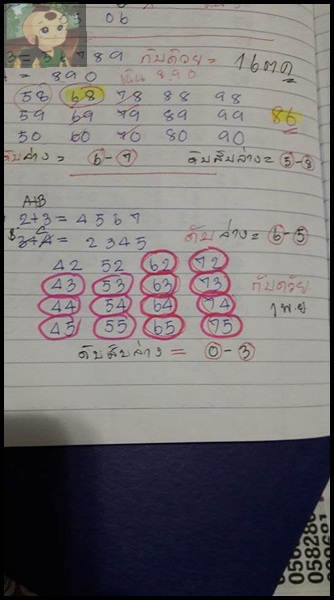 06
= 5 6 7 8 9 กับด้วย = 16 ตค
= 890 เน้น 890
58 68 78 88 98
59 69 79 89 99 86
50 60 70 80 90
ดับล่าง = 6-7 ดับสิบล่าง = 5-8
A+B
2+3 = 4 5 6 7
3+4 = 2 3 4 5 ดับล่าง = 6-5
42 52 62 72
43 53 63 73 กับด้วย
44 54 64 74 1 พ.ย
45 55 65 75
ดับสิบล่าง = 0-3
058280